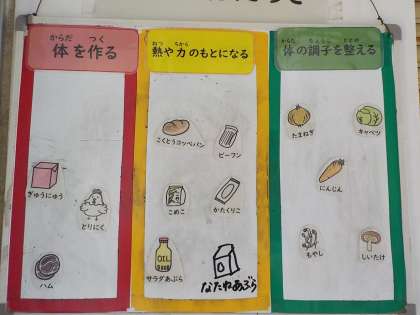 からだ つく
体を作る
ぎゅうにゅう
とりにく
ハム
ねつ ちから
熱や力のもとになる
こくとうコッペパン
ビーフン
こめこ
かたくりこ
OIL
サラダあぶら
なたねあぶら
からだ ちょうし ととの
体の調子を整える
たまねぎ
キャベツ
にんじん
もやし
しいたけ